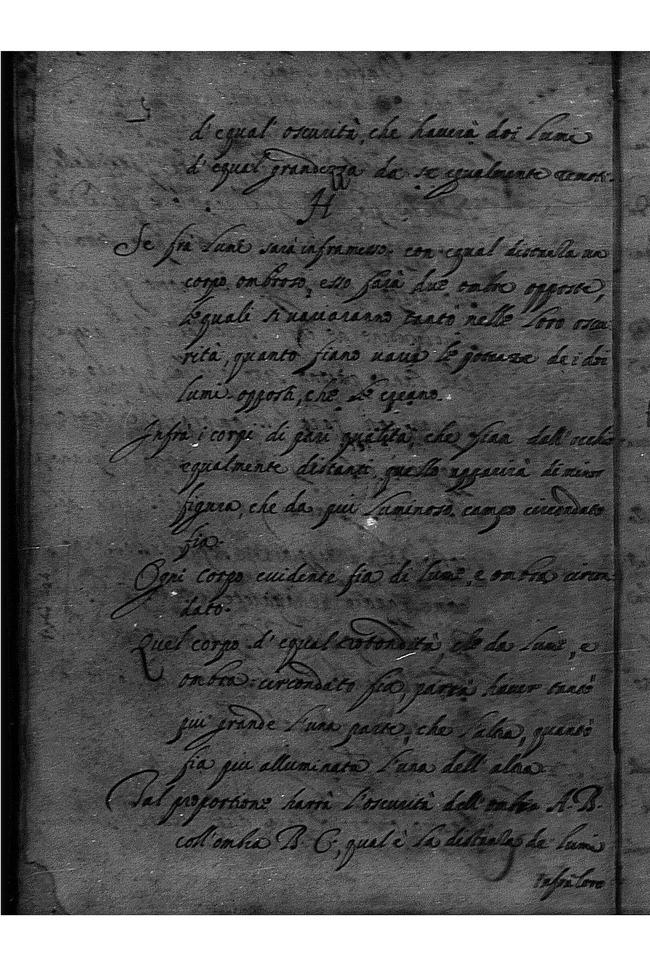 d'equal' oscurità, che haverà doi lumi
d'equal grandezza da se egualmente remoti.
H
Se frà lumi sarà inframesso con equal distanza un
corpo ombroso, esso farà due ombre opposte,
le quali si variaranno tanto nelle loro oscu
rità, quanto fiano varie le potenze de i doi
lumi opposti, che le creano.
Infrà i corpi di pari qualità, che sian dall'occhio
egualmente distanti, quello apparirà di minor
figura, che da piu luminoso campo circondato
fia.
Ogni corpo evidente fia di lume, e ombra circon
dato.
Quel corpo d'equal rotondità, che da lume, e
ombra circondato fia, parrà haver tanto
piu grande l'una parte, che l'altra, quanto
fia piu alluminata l'una dell'altra.
Tal proportione harrà l'oscurità dell'ombra A. B.
coll'ombra B. C., qual è la distanza de lumi
infra loro